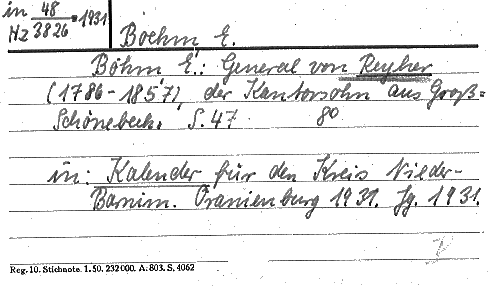 in 48/3826 = 1931
Hz
Boehm E.
Böhm E.: General von Reyher
(1786-1857), der Kantorsohn aus Groß=
Schönebeck. S. 47 80
in: Kalender für den Kreis Nieder-
Barnim. Oranienburg 1931. Jg. 1931.
Reg. 10. Stichnote. 1. 50. 232000. A. 803. S. 4062